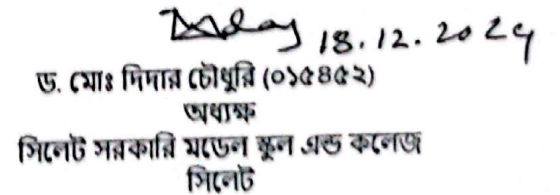 18.12.2024
ড. মোঃ দিদার চৌধুরি (০১৫৪৫২)
অধ্যক্ষ
সিলেট সরকারি মডেল স্কুল এন্ড কলেজ
সিলেট